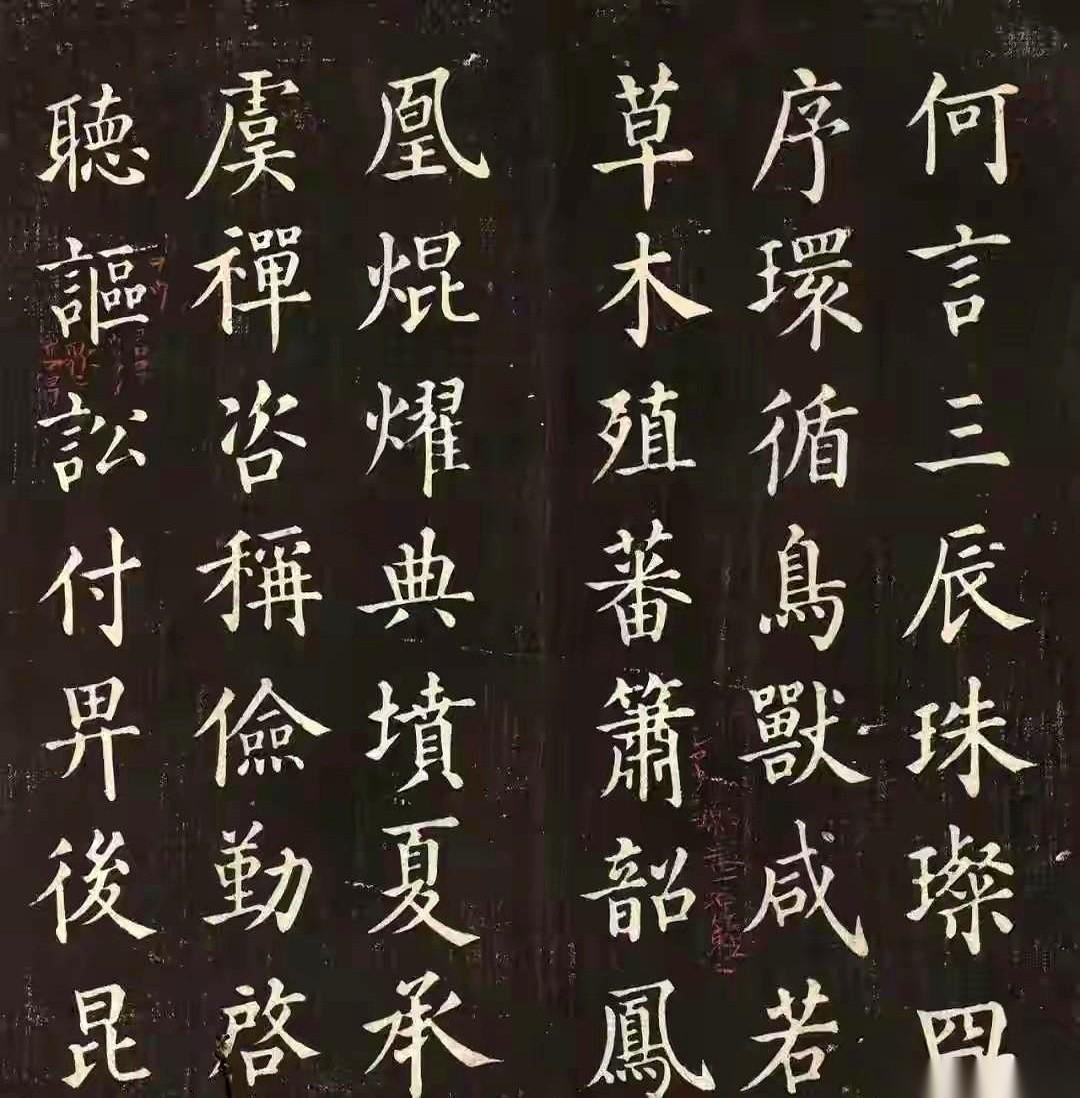 何言三辰珠璨四
序環循鳥獸咸若
草木殖蕃簫韶鳳
凰焜燿典墳夏承
虞禪咨稱儉勤啓
聽謳訟付畀後昆